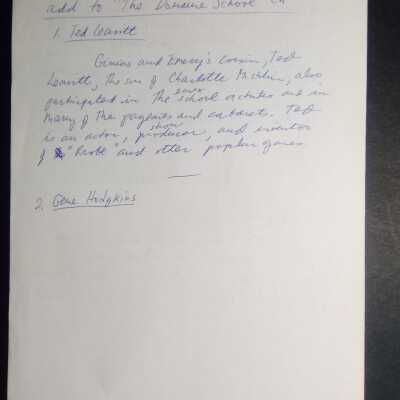 add to "The Domaine School in
1. Ted Leavitt
and Emery's cousin, Ted
Leavitt, the son of Charlotte, also
participated in the school activities and in
even
many of the pageants and cabarets. Ted
is an actor, producer, and inventor
show
of "Probe" and other popular games.
2. Gene Hodgkins